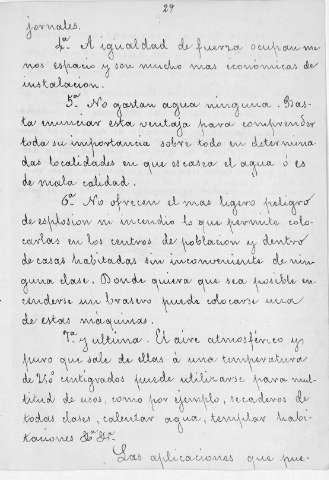 29
jornales.
4ª. A igualdad de fuerza ocupan me
nos espacio y son mucho mas económicas de
instalacion.
5ª. No gastan agua ninguna. Bas-
ta enunciar esta ventaja para comprender
toda su importancia sobre todo en determina
das localidades en que escasea el agua ó es
de mala calidad.
6ª. No ofrecen el mas ligero peligro
de esplosion ni incendio lo que permite colo-
carlas en los centros de poblacion y dentro
de casas habitadas sin inconveniente de nin-
guna clase. Donde quiera que sea posible en-
cenderse un brasero puede colocarse una
de estas máquinas.
7ª. y ultima. El aire atmosférico y
puro que sale de ellas á una temperatura
de centigrados puede utilizarse para mul-
titud de usos, como por ejemplo, secaderos de
todas clases, calentar agua, templar habi-
taciones &ª. &ª.
Las aplicaciones que pue-